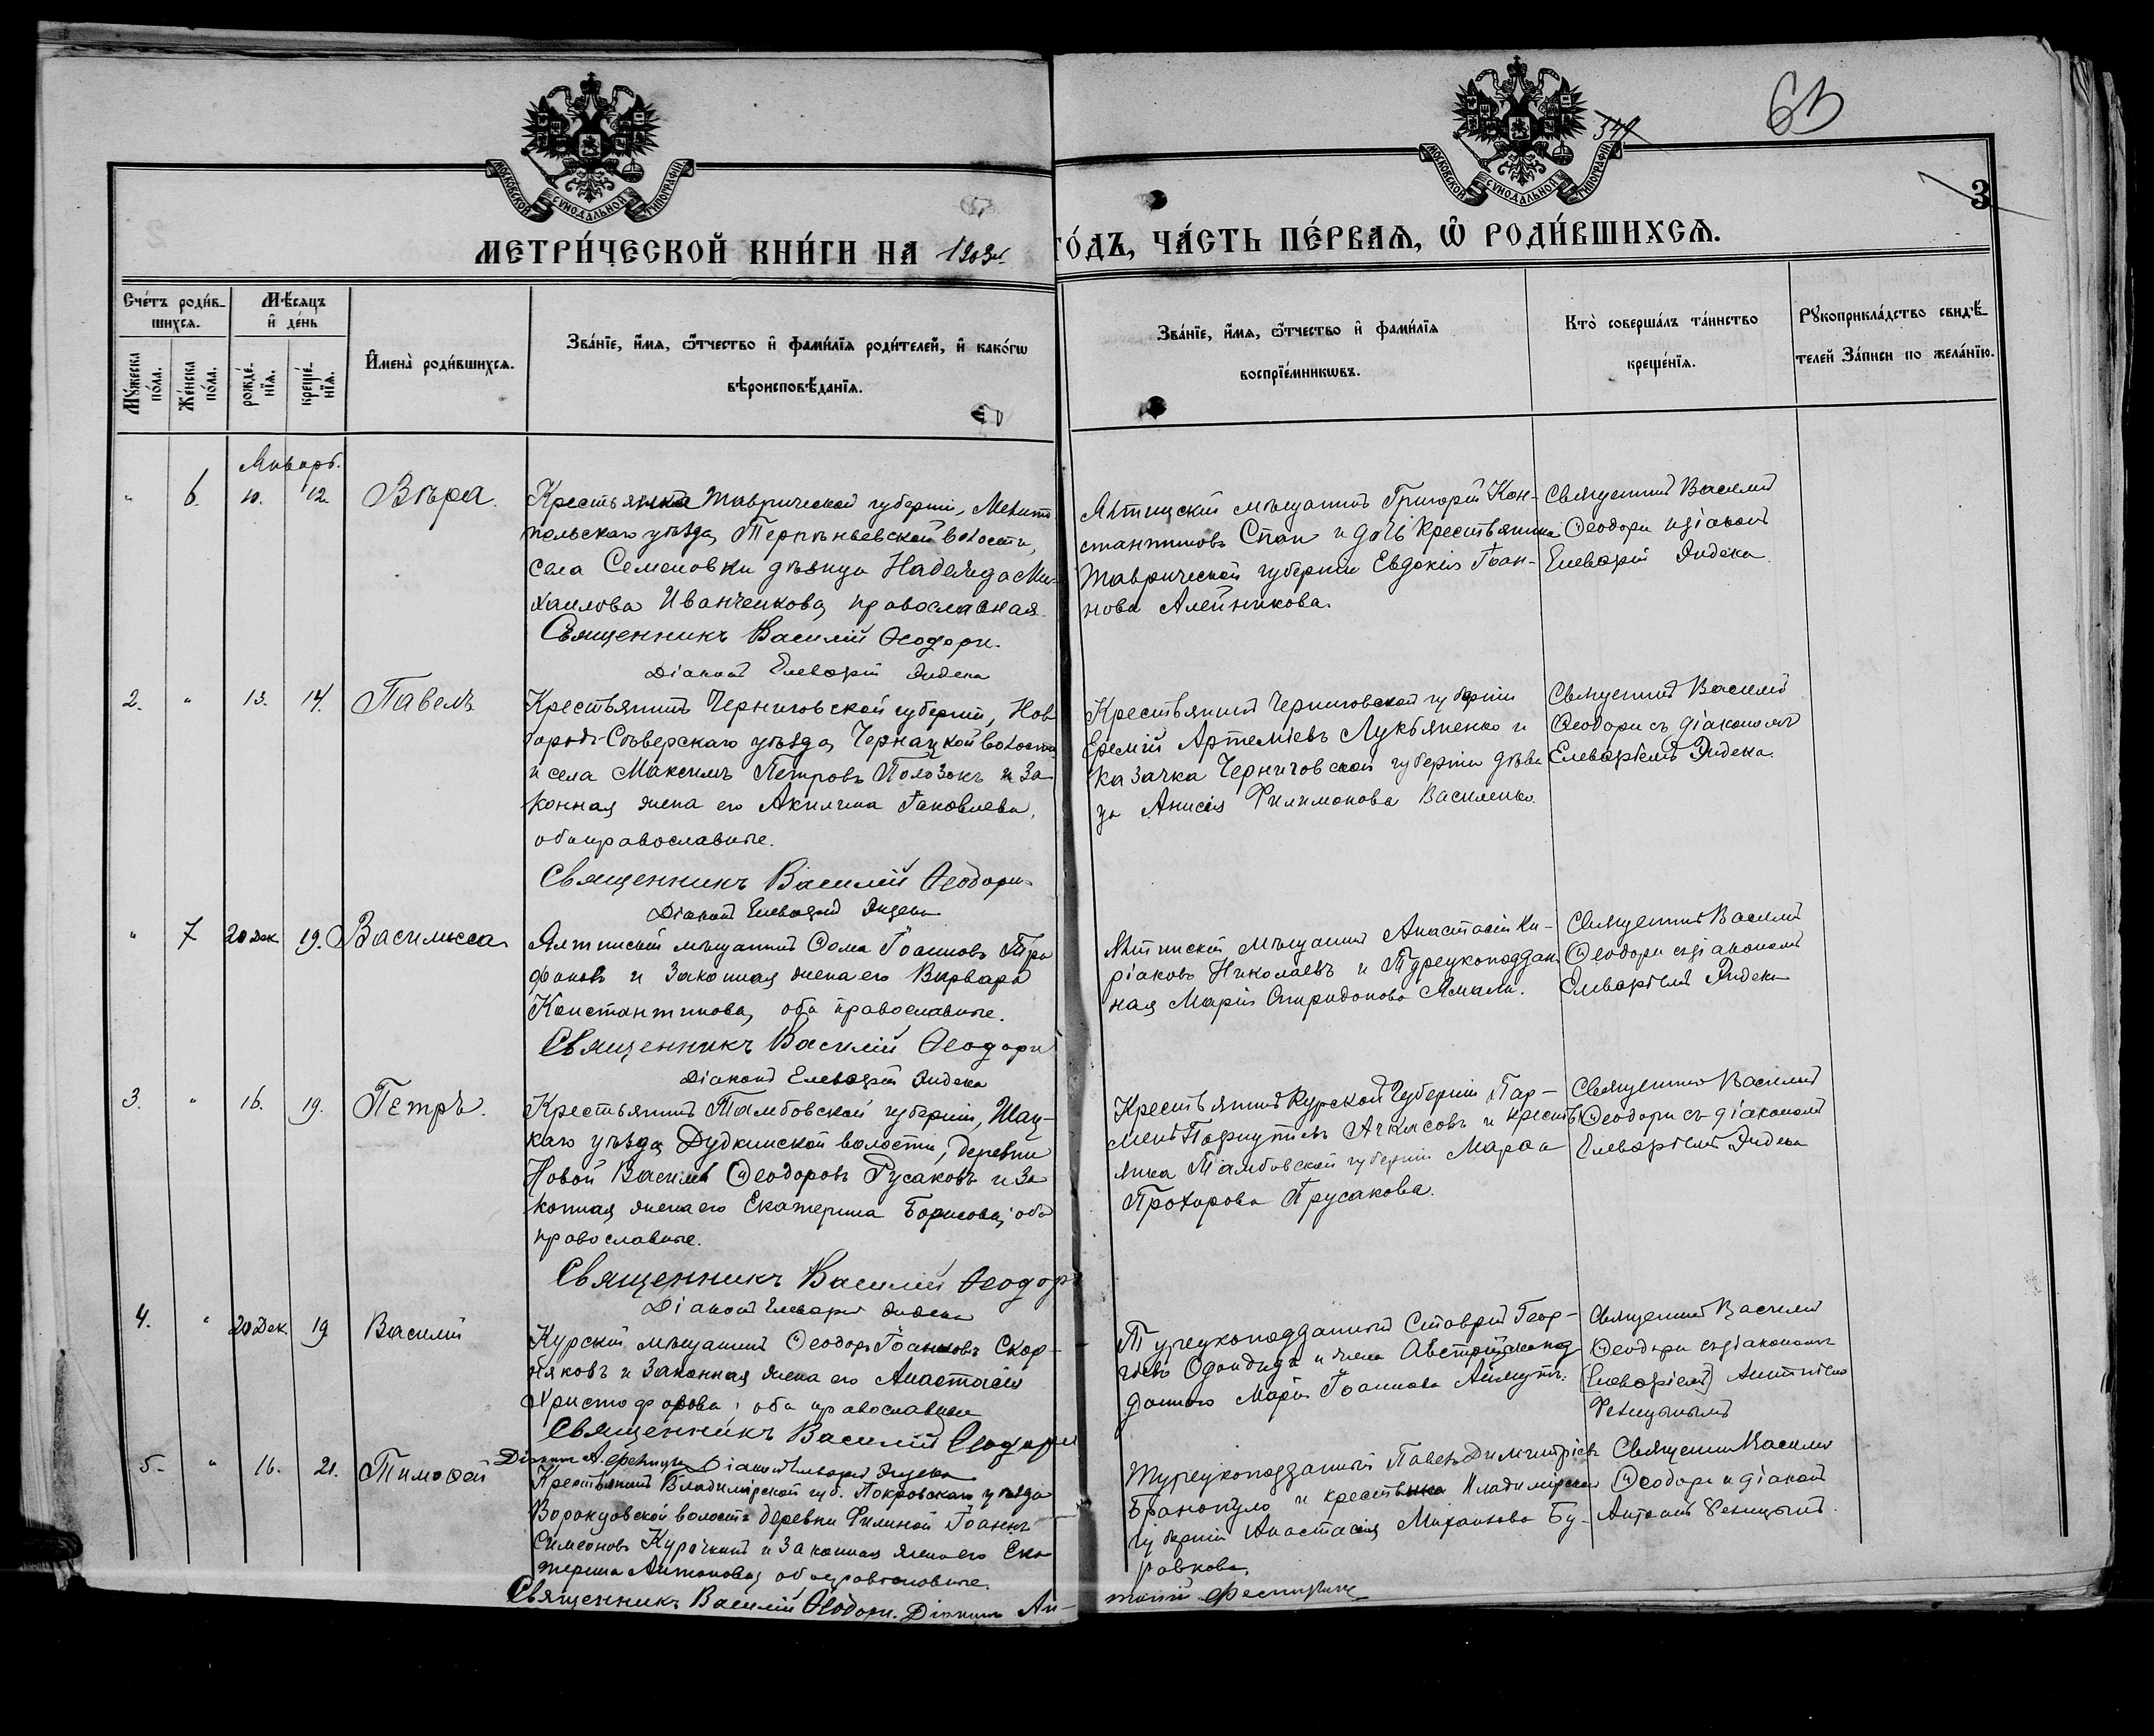 63
349
3
МОСКОВСКОЙ СѴНОДАЛЬНОЙ ТИПОГРАФІИ
МОСКОВСКОЙ СѴНОДАЛЬНОЙ ТИПОГРАФІИ
МЕТРИ́ЧЕСКОЙ КНИ́ГИ НА 1903 г. ГО́ДЪ, ЧА́СТЬ ПЕ́РВАѦ, Ѡ҆ РОДИ́ВШИХСѦ.
Сче́тъ роди́в-
шихсѧ.
Мѣ́сѧцъ
и҆ де́нь
Мꙋ́жеска
по́ла.
Же́нска
по́ла.
рожде́-
нїѧ.
креще́-
нїѧ.
И҆мена̀ роди́вшихсѧ.
Зва́нїе, и҆́мѧ, ѻ҆́тчество и҆ фами́лїѧ роди́телей, и҆ како́гѡ
вѣроисповѣ́данїѧ.
Зва́нїе, и҆́мѧ, ѻ҆́тчество и҆ фами́лїѧ
воспрїе́мникѡвъ.
Кто̀ соверша́лъ та́инство
креще́нїѧ.
Рꙋкоприкла́дство свидѣ́-
телей За́писи по жела́нїю.
Январь.
" 6. 10. 12. Вѣра.
Крестьянка Таврической губерніи, Мелито-
польскаго уѣзда, Терпѣньевской волости,
села Семеновки дѣвица Надежда Ми-
хаилова Иванченкова, православная.
Священникъ Василій Ѳеодори.
Діаконъ Елевѳерій
Ялтинскій мѣщанинъ Григорій Кон-
стантиновъ Спаи и дочь крестьянина
Таврической губерніи Евдокія Іоан-
нова Алейникова.
Священникъ Василій
Ѳеодори и діаконъ
Елевѳерій
2. " 13. 14. Павелъ
Крестьянинъ Черниговской губерніи, Нов-
городъ-Сѣверскаго уѣзда, Чернацкой волости
и села Максимъ Петровъ Полозокъ и за-
конная жена его Акилина Іаковлева,
оба православные.
Священникъ Василій Ѳеодори
Діаконъ Елевѳерій
Крестьянинъ Черниговской губерніи
Еремій Артеміевъ Лукьяненко и
казачка Черниговской губерніи дѣви-
ца Анисія Филимонова Василенко.
Священникъ Василій
Ѳеодори съ діакономъ
Елевѳеріемъ
" 7 20 Дек. 19. Василисса
Ялтинскій мѣщанинъ Ѳома Іоанновъ
и законная жена его Варвара
Константинова, оба православные.
Священникъ Василій Ѳеодори
Діаконъ Елевѳерій
Ялтинскій мѣщанинъ Анастасій Ки-
ріаковъ Николаевъ и Турецкоподдан-
ная Марія Спиридонова
Священникъ Василій
Ѳеодори съ діакономъ
Елевѳеріемъ
3. " 16. 19. Петръ.
Крестьянинъ Тамбовской губерніи, Шац-
каго уѣзда, Дудкинской волости, деревни
Новой Василій Ѳеодоровъ Русаковъ и за-
конная жена его Екатерина Борисова, оба
православные.
Священникъ Василій Ѳеодори
Діаконъ Елевѳерій
Крестьянинъ Курской губерніи Пар-
менъ и кресть-
янка Тамбовской губерніи Марѳа
Прохорова Прусакова.
Священникъ Василій
Ѳеодори съ діакономъ
Елевѳеріемъ
4. " 20 Дек. 19 Василій
Курскій мѣщанинъ Ѳеодоръ Іоанновъ Скор-
няковъ и законная жена его Анастасія
Христофорова, оба православные
Священникъ Василій Ѳеодори
Діаконъ Елевѳерій
Турецкоподданный Ставрій Геор-
гіевъ и жена Австрійскопод-
даннаго Марія Іоаннова
Священникъ Василій
Ѳеодори съ діакономъ
(Елевѳеріемъ) Антоніемъ
5. " 16. 21. Тимоѳей
Крестьянинъ Владимірской губ. Покровскаго уѣзда
Воронцовской волости деревни Филиной Іоаннъ
Симеоновъ Курочкинъ и законная жена его Ека-
терина Антонова, оба православные.
Священникъ Василій Ѳеодори. Діаконъ Ан-
тоній
Турецкоподданный Павелъ Димитріевъ
и крестьянка Владимірской
губерніи Анастасія Михаилова Бу-
равкова.
Священникъ Василій
Ѳеодори и діаконъ
Антоній